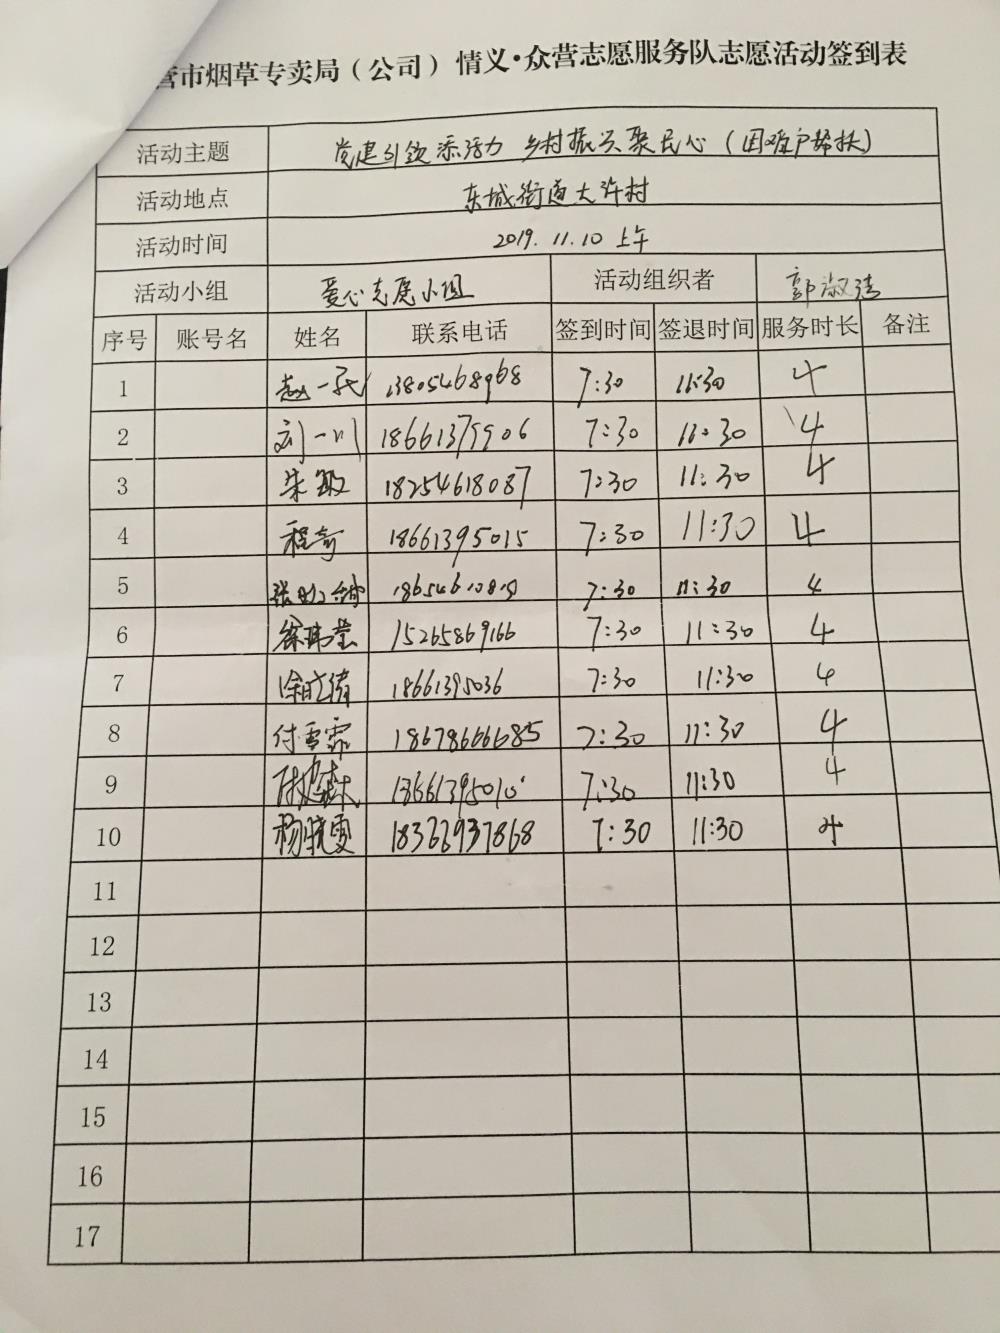 营市烟草专卖局（公司）情义·众营志愿服务队志愿活动签到表
活动主题 党建引领添活力 乡村振兴聚民心（困难户帮扶）
活动地点 东城街道大许村
活动时间 2019.11.10 上午
活动小组 爱心志愿小组 活动组织者 郭淑清
序号 账号名 姓名 联系电话 签到时间 签退时间 服务时长 备注
1 赵一 13805468968 7:30 11:30 4
2 刘一川 18661379906 7:30 11:30 4
3 朱敏 18254618087 7:30 11:30 4
4 程奇 18661395015 7:30 11:30 4
5 张 7:30 11:30 4
6 徐玮莹 15265869166 7:30 11:30 4
7 徐 18661395036 7:30 11:30 4
8 付雪霏 18678666685 7:30 11:30 4
9 7:30 11:30 4
10 杨晓雯 18362937868 7:30 11:30 4
11
12
13
14
15
16
17